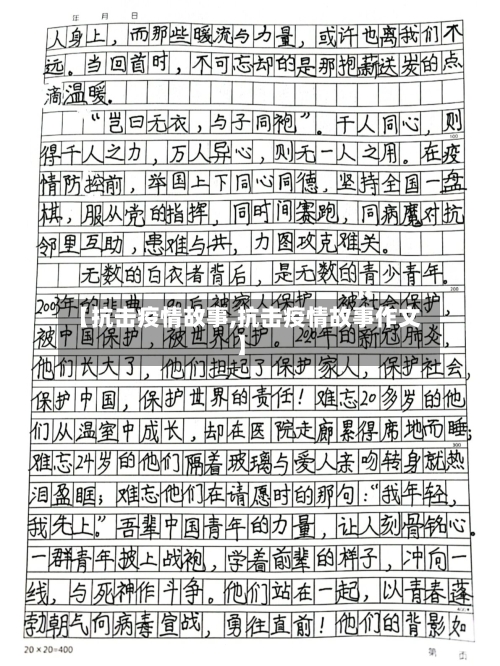 年 月 日
人身上，而那些暖流与力量，或许也离我们不
远。当回首时，不可忘却的是那抱薪送炭的点
滴温暖。
“岂曰无衣，与子同袍”。千人同心，则
100
得千人之力，万人异心，则无一人之用。在疫
情防控前，举国上下同心同德，坚持全国一盘
棋，服从党的指挥，同时间赛跑，同病魔对抗
邻里互助，患难与共，力图攻克难关。
无数的白衣者背后，是无数的青少年。
200
2003年的非典，90后被家人保护，被社会保护，
【抗击疫情故事,抗击疫情故事作文
】
被中国保护，被世界保护。2020年的新冠肺炎，
他们长大了，他们担起了保护家人，保护社会，
保护中国，保护世界的责任！难忘20多岁的他
们从温室中成长，却在医院走廊累得席地而睡；
300
难忘24岁的他们隔着玻璃与爱人亲吻转身就热
泪盈眶；难忘他们在请愿时的那句：“我年轻，
我先上。”吾辈中国青年的力量，让人刻骨铭心。
一群青年披上战袍，学着前辈的样子，冲向一
线，与死神作斗争。他们站在一起，以青春蓬
勃朝气向病毒宣战，勇往直前！他们的背影如
20×20=400
第 页